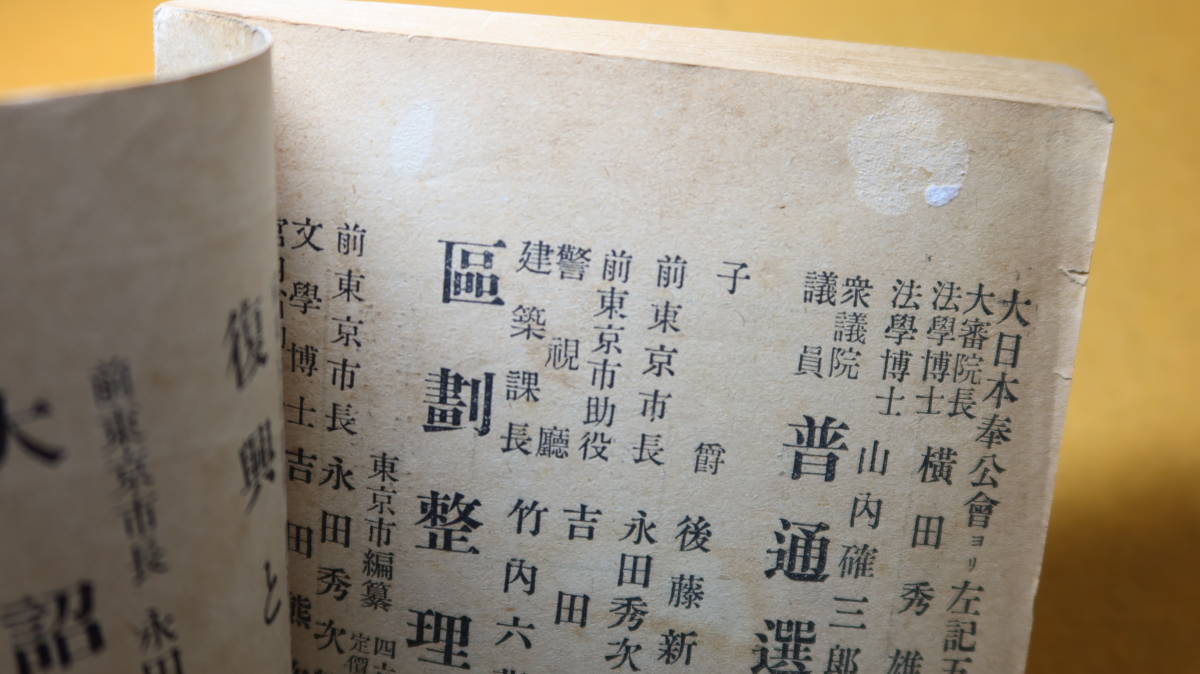 大日本奉公會ヨリ左記五
大審院長
法學博士 橫田秀雄
法學博士 山內確三郎
衆議院
議員
普通選
子爵 後藤新
前東京市長 永田秀次
前東京市助役 吉田
警視廳
建築課長 竹內六
區劃整理
東京市編纂
定價
前東京市長 永田秀次
文學博士 吉田熊
復興と
前東京市長 永田
大詔